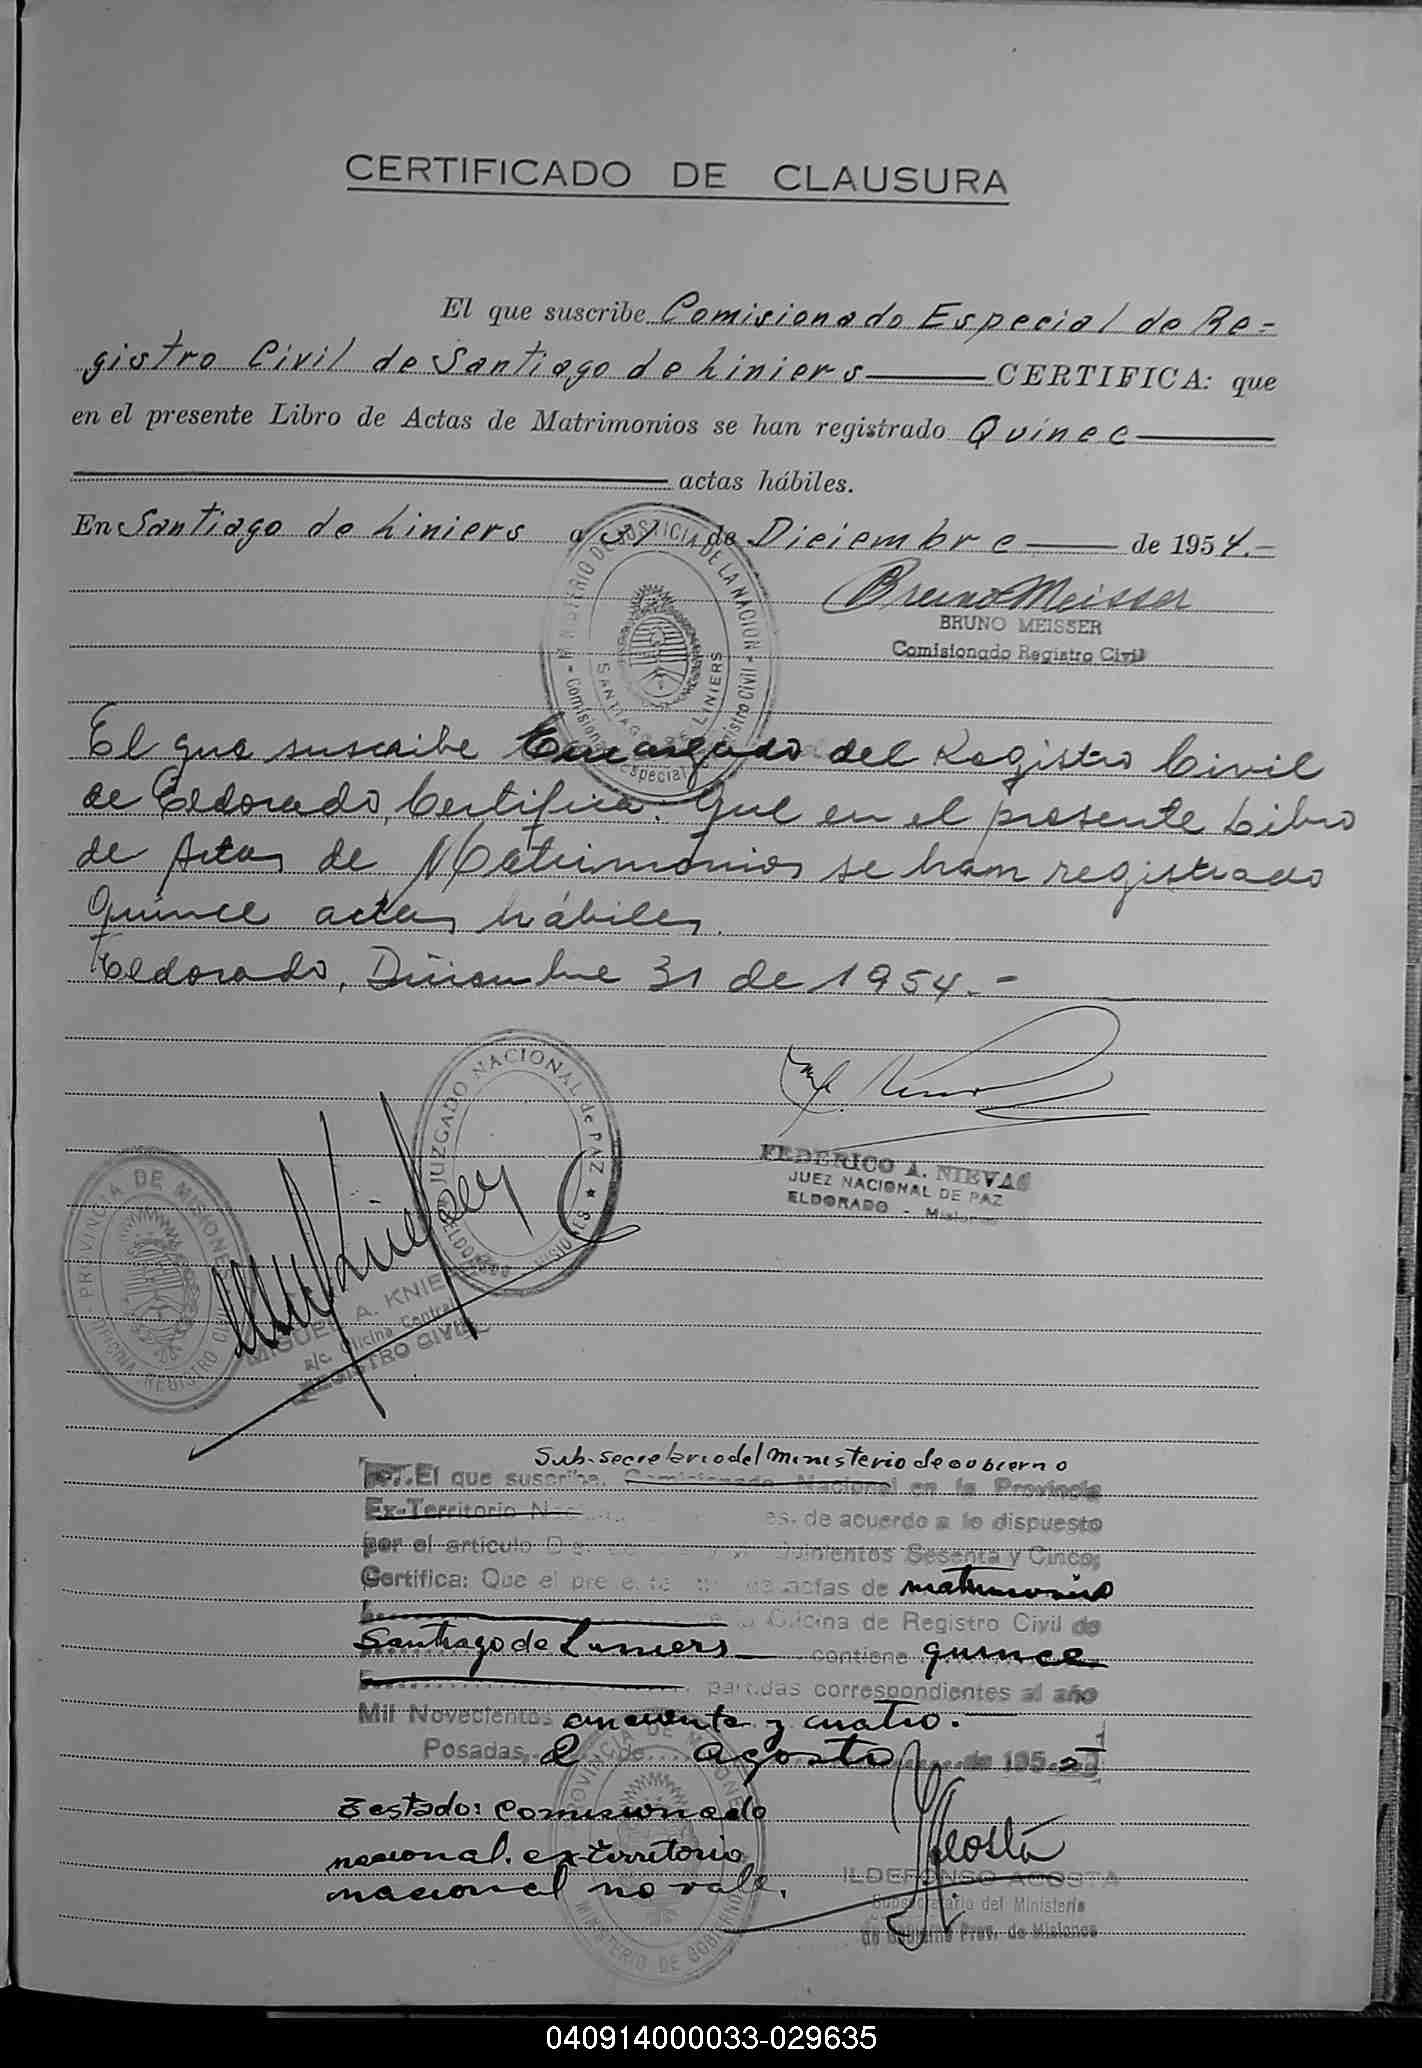 CERTIFICADO DE CLAUSURA
El que suscribe Comisionado Especial de Re-
gistro Civil de Santiago de Liniers CERTIFICA: que
en el presente Libro de Actas de Matrimonios se han registrado Quinec
actas hábiles.
En Santiago de Liniers a 31 de Diciembre de 1954.-
Bruno Meisser
BRUNO MEISSER
Comisionado Registro Civil
MINISTERIO DE JUSTICIA DE LA NACION
Comisionado Especial Registro Civil
SANTIAGO DE LINIERS
El que suscribe Encargado del Registro Civil
de Eldorado, Certifica: Que en el presente Libro
de Actas de Matrimonios se han registrado
Quince actas hábiles.
Eldorado, Diciembre 31 de 1954.-
JUZGADO NACIONAL de PAZ
ELDORADO MISIONES
FEDERICO A. NIEVAS
JUEZ NACIONAL DE PAZ
ELDORADO - Misiones
PROVINCIA DE MISIONES
OFICINA REGISTRO CIVIL
MIGUEL A. KNIE
a/c. Oficina Central
REGISTRO CIVIL
Sub-secretario del Ministerio de Gobierno
El que suscribe, Comisionado Nacional en la Provincia
Ex-Territorio es, de acuerdo a lo dispuesto
por el artículo Quinientos Sesenta y Cinco;
Certifica: Que el presente actas de matrimonios
Oficina de Registro Civil de
Santiago de Liniers contiene quince
partidas correspondientes al año
Mil Novecientos cincuenta y cuatro.-
Posadas, 2 de agosto de 195
Testado: Comisionado
nacional. ex-territorio
nacional no vale.
PROVINCIA DE MISIONES
MINISTERIO DE GOBIERNO
Acosta
ILDEFONSO ACOSTA
Subsecretario del Ministerio
de Gobierno Prov. de Misiones
040914000033-029635